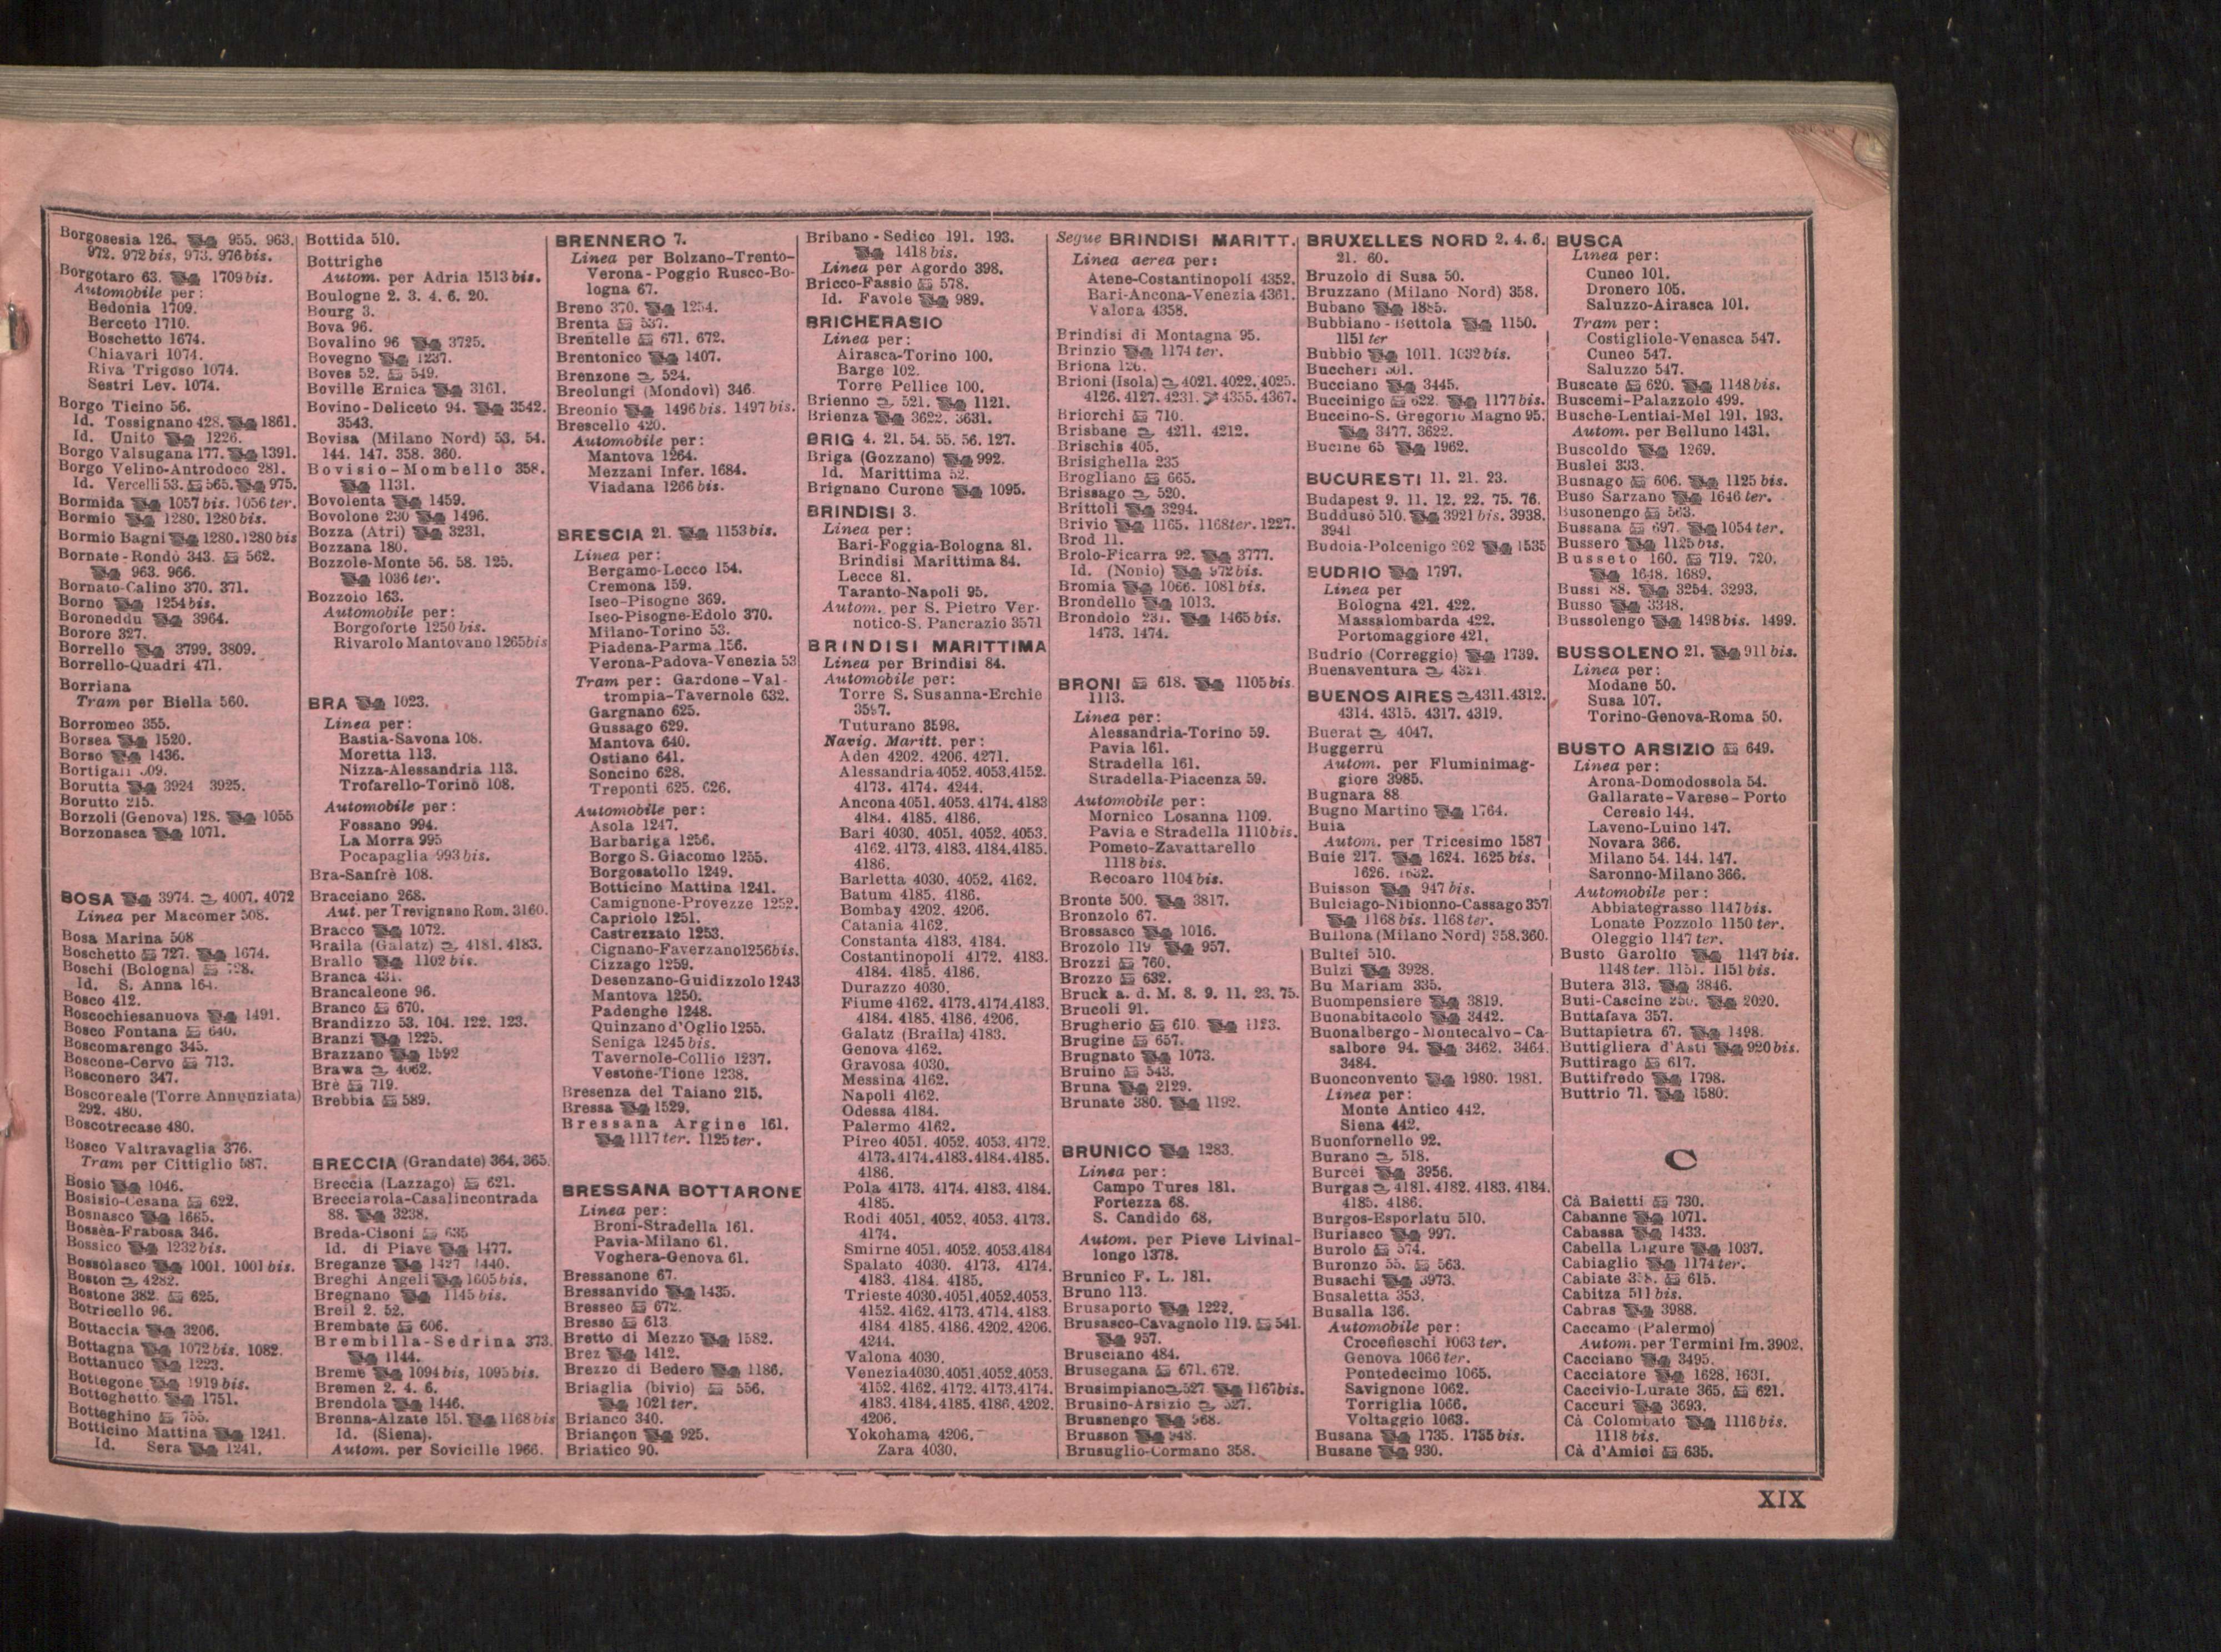 Borgosesia 126. 955. 963.
972. 972 bis, 973. 976 bis.
Borgotaro 63. 1709 bis.
Automobile per:
Bedonia 1709.
Berceto 1710.
Boschetto 1674.
Chiavari 1074.
Riva Trigoso 1074.
Sestri Lev. 1074.
Borgo Ticino 56.
Id. Tossignano 428. 1861.
Id. Unito 1226.
Borgo Valsugana 177. 1391.
Borgo Velino-Antrodoco 281.
Id. Vercelli 53. 565. 975.
Bormida 1057 bis. 1056 ter.
Bormio 1280. 1280 bis.
Bormio Bagni 1280. 1280 bis
Bornate-Rondò 343. 562.
963. 966.
Bornato-Calino 370. 371.
Borno 1254 bis.
Boroneddu 3964.
Borore 327.
Borrello 3799. 3809.
Borrello-Quadri 471.
Borriana
Tram per Biella 560.
Borromeo 355.
Borsea 1520.
Borso 1436.
Bortigali
Borutta 3924 3925.
Borutto 215.
Borzoli (Genova) 128. 1055
Borzonasca 1071.
BOSA 3974. 4007. 4072
Linea per Macomer 508.
Bosa Marina 508
Boschetto 727. 1674.
Boschi (Bologna)
Id. S. Anna
Bosco 412.
Boscochiesanuova 1491.
Bosco Fontana 640.
Boscomarengo 345.
Boscone-Cervo 713.
Bosconero 347.
Boscoreale (Torre Annunziata)
292. 480.
Boscotrecase 480.
Bosco Valtravaglia 376.
Tram per Cittiglio 587.
Bosio 1046.
Bosisio-Cesana 622.
Bosnasco 1665.
Bossèa-Frabosa 346.
Bossico 1232 bis.
Bossolasco 1001. 1001 bis.
Boston 4282.
Bostone 382. 625.
Botricello 96.
Bottaccia 3206.
Bottagna 1072 bis. 1082.
Bottanuco 1223.
Bottegone 1919 bis.
Botteghetto 1751.
Botteghino 755.
Botticino Mattina 1241.
Id. Sera 1241.
Bottida 510.
Bottrighe
Autom. per Adria 1513 bis.
Boulogne 2. 3. 4. 6. 20.
Bourg 3.
Bova 96.
Bovalino 96 3725.
Bovegno 1237.
Boves 52. 549.
Boville Ernica 3161.
Bovino-Deliceto 94. 3542.
3543.
Bovisa (Milano Nord) 53. 54.
144. 147. 358. 360.
Bovisio-Mombello 358.
1131.
Bovolenta 1459.
Bovolone 230 1496.
Bozza (Atri) 3231.
Bozzana 180.
Bozzole-Monte 56. 58. 125.
1036 ter.
Bozzolo 163.
Automobile per:
Borgoforte 1250 bis.
Rivarolo Mantovano 1265 bis
BRA 1023.
Linea per:
Bastia-Savona 108.
Moretta 113.
Nizza-Alessandria 113.
Trofarello-Torino 108.
Automobile per:
Fossano 994.
La Morra 995
Pocapaglia 993 bis.
Bra-Sanfrè 108.
Bracciano 268.
Aut. per Trevignano Rom. 3160.
Bracco 1072.
Braila (Galatz) 4181. 4183.
Brallo 1102 bis.
Branca 431.
Brancaleone 96.
Branco 670.
Brandizzo 53. 104. 122. 123.
Branzi 1225.
Brazzano 1592
Brawa 4062.
Brè 719.
Brebbia 589.
BRECCIA (Grandate) 364. 365.
Breccia (Lazzago) 621.
Brecciarola-Casalincontrada
88. 3238.
Breda-Cisoni 635
Id. di Piave 1477.
Breganze 1427 1440.
Breghi Angeli 1605 bis.
Bregnano 1145 bis.
Breil 2. 52.
Brembate 606.
Brembilla-Sedrina 373.
1144.
Breme 1094 bis, 1095 bis.
Bremen 2. 4. 6.
Brendola 1446.
Brenna-Alzate 151. 1168 bis
Id. (Siena).
Autom. per Sovicille 1966.
BRENNERO 7.
Linea per Bolzano-Trento-
Verona-Poggio Rusco-Bo-
logna 67.
Breno 370. 1254.
Brenta 537.
Brentelle 671. 672.
Brentonico 1407.
Brenzone 524.
Breolungi (Mondovì) 346.
Breonio 1496 bis. 1497 bis.
Brescello 420.
Automobile per:
Mantova 1264.
Mezzani Infer. 1684.
Viadana 1266 bis.
BRESCIA 21. 1153 bis.
Linea per:
Bergamo-Lecco 154.
Cremona 159.
Iseo-Pisogne 369.
Iseo-Pisogne-Edolo 370.
Milano-Torino 53.
Piadena-Parma 156.
Verona-Padova-Venezia 53
Tram per: Gardone-Val-
trompia-Tavernole 632.
Gargnano 625.
Gussago 629.
Mantova 640.
Ostiano 641.
Soncino 628.
Treponti 625. 626.
Automobile per:
Asola 1247.
Barbariga 1256.
Borgo S. Giacomo 1255.
Borgosatollo 1249.
Botticino Mattina 1241.
Camignone-Provezze 1252.
Capriolo 1251.
Castrezzato 1253.
Cignano-Faverzano 1256 bis.
Cizzago 1259.
Desenzano-Guidizzolo 1243
Mantova 1250.
Padenghe 1248.
Quinzano d'Oglio 1255.
Seniga 1245 bis.
Tavernole-Collio 1237.
Vestone-Tione 1238.
Bresenza del Taiano 215.
Bressa 1529.
Bressana Argine 161.
1117 ter. 1125 ter.
BRESSANA BOTTARONE
Linea per:
Broni-Stradella 161.
Pavia-Milano 61.
Voghera-Genova 61.
Bressanone 67.
Bressanvido 1435.
Bresseo 672.
Bresso 613
Bretto di Mezzo 1582.
Brez 1412.
Brezzo di Bedero 1186.
Briaglia (bivio) 556.
1021 ter.
Brianco 340.
Briançon 925.
Briatico 90.
Bribano-Sedico 191. 193.
1418 bis.
Linea per Agordo 398.
Bricco-Fassio 578.
Id. Favole 989.
BRICHERASIO
Linea per:
Airasca-Torino 100.
Barge 102.
Torre Pellice 100.
Brienno 521. 1121.
Brienza 3622. 3631.
BRIG 4. 21. 54. 55. 56. 127.
Briga (Gozzano) 992.
Id. Marittima 52.
Brignano Curone 1095.
BRINDISI 3.
Linea per:
Bari-Foggia-Bologna 81.
Brindisi Marittima 84.
Lecce 81.
Taranto-Napoli 95.
Autom. per S. Pietro Ver-
notico-S. Pancrazio 3571
BRINDISI MARITTIMA
Linea per Brindisi 84.
Automobile per:
Torre S. Susanna-Erchie
3597.
Tuturano 3598.
Navig. Maritt. per:
Aden 4202. 4206. 4271.
Alessandria 4052. 4053. 4152.
4173. 4174. 4244.
Ancona 4051. 4053. 4174. 4183
4184. 4185. 4186.
Bari 4030. 4051. 4052. 4053.
4162. 4173. 4183. 4184. 4185.
4186.
Barletta 4030. 4052. 4162.
Batum 4185. 4186.
Bombay 4202. 4206.
Catania 4162.
Constanta 4183. 4184.
Costantinopoli 4172. 4183.
4184. 4185. 4186.
Durazzo 4030.
Fiume 4162. 4173. 4174. 4183.
4184. 4185. 4186. 4206.
Galatz (Braila) 4183.
Genova 4162.
Gravosa 4030.
Messina 4162.
Napoli 4162.
Odessa 4184.
Palermo 4162.
Pireo 4051. 4052. 4053. 4172.
4173. 4174. 4183. 4184. 4185.
4186.
Pola 4173. 4174. 4183. 4184.
4185.
Rodi 4051. 4052. 4053. 4173.
4174.
Smirne 4051. 4052. 4053. 4184
Spalato 4030. 4173. 4174.
4183. 4184. 4185.
Trieste 4030. 4051. 4052. 4053.
4152. 4162. 4173. 4714. 4183.
4184 4185. 4186. 4202. 4206.
4244.
Valona 4030.
Venezia 4030. 4051. 4052. 4053.
4152. 4162. 4172. 4173. 4174.
4183. 4184. 4185. 4186. 4202.
4206.
Yokohama 4206.
Zara 4030.
Segue BRINDISI MARITT.
Linea aerea per:
Atene-Costantinopoli 4352.
Bari-Ancona-Venezia 4361.
Valona 4358.
Brindisi di Montagna 95.
Brinzio 1174 ter.
Briona 126.
Brioni (Isola) 4021. 4022. 4025.
4126. 4127. 4231. 4355. 4367.
Briorchi 710.
Brisbane 4211. 4212.
Brischis 405.
Brisighella 235
Brogliano 665.
Brissago 520.
Brittoli 3294.
Brivio 1165. 1168 ter. 1227.
Brod 11.
Brolo-Ficarra 92. 3777.
Id. (Nonio) 972 bis.
Bromia 1066. 1081 bis.
Brondello 1013.
Brondolo 231. 1465 bis.
1473. 1474.
BRONI 618. 1105 bis
1113.
Linea per:
Alessandria-Torino 59.
Pavia 161.
Stradella 161.
Stradella-Piacenza 59.
Automobile per:
Mornico Losanna 1109.
Pavia e Stradella 1110 bis.
Pometo-Zavattarello
1118 bis.
Recoaro 1104 bis.
Bronte 500. 3817.
Bronzolo 67.
Brossasco 1016.
Brozolo 119 957.
Brozzi 760.
Brozzo 632.
Bruck a. d. M. 8. 9. 11. 23. 75.
Brucoli 91.
Brugherio 610. 1123.
Brugine 657.
Brugnato 1073.
Bruino 543.
Bruna 2129.
Brunate 380. 1192.
BRUNICO 1283.
Linea per:
Campo Tures 181.
Fortezza 68.
S. Candido 68.
Autom. per Pieve Livinal-
longo 1378.
Brunico F. L. 181.
Bruno 113.
Brusaporto 1222.
Brusasco-Cavagnolo 119. 541.
957.
Brusciano 484.
Brusegana 671. 672.
Brusimpiano 527. 1167 bis.
Brusino-Arsizio 527.
Brusnengo 968.
Brusson 948.
Brusuglio-Cormano 358.
BRUXELLES NORD 2. 4. 6.
21. 60.
Bruzolo di Susa 50.
Bruzzano (Milano Nord) 358.
Bubano 1885.
Bubbiano-Bettola 1150.
1151 ter
Bubbio 1011. 1032 bis.
Buccheri 501.
Bucciano 3445.
Buccinigo 622. 1177 bis.
Buccino-S. Gregorio Magno 95.
3477. 3622.
Bucine 65 1962.
BUCURESTI 11. 21. 23.
Budapest 9. 11. 12. 22. 75. 76.
Buddusò 510. 3921 bis. 3938.
3941
Budoia-Polcenigo 202 1535
BUDRIO 1797.
Linea per
Bologna 421. 422.
Massalombarda 422.
Portomaggiore 421.
Budrio (Correggio) 1739.
Buenaventura 4321
BUENOS AIRES 4311. 4312.
4314. 4315. 4317. 4319.
Buerat 4047.
Buggerru
Autom. per Fluminimag-
giore 3985.
Bugnara 88
Bugno Martino 1764.
Buia
Autom. per Tricesimo 1587
Buie 217. 1624. 1625 bis.
1626. 1632.
Buisson 947 bis.
Bulciago-Nibionno-Cassago 357
1168 bis. 1168 ter.
Bullona (Milano Nord) 358. 360.
Bultei 510.
Bulzi 3928.
Bu Mariam 335.
Buompensiere 3819.
Buonabitacolo 3442.
Buonalbergo-Montecalvo-Ca-
salbore 94. 3462. 3464.
3484.
Buonconvento 1980. 1981.
Linea per:
Monte Antico 442.
Siena 442.
Buonfornello 92.
Burano 518.
Burcei 3956.
Burgas 4181. 4182. 4183. 4184.
4185. 4186.
Burgos-Esporlatu 510.
Buriasco 997.
Burolo 574.
Buronzo 55. 563.
Busachi 3973.
Busaletta 353.
Busalla 136.
Automobile per:
Crocefieschi 1063 ter.
Genova 1066 ter.
Pontedecimo 1065.
Savignone 1062.
Torriglia 1066.
Voltaggio 1063.
Busana 1735. 1735 bis.
Busane 930.
BUSCA
Linea per:
Cuneo 101.
Dronero 105.
Saluzzo-Airasca 101.
Tram per:
Costigliole-Venasca 547.
Cuneo 547.
Saluzzo 547.
Buscate 620. 1148 bis.
Buscemi-Palazzolo 499.
Busche-Lentiai-Mel 191. 193.
Autom. per Belluno 1431.
Buscoldo 1269.
Buslei 333.
Busnago 606. 1125 bis.
Buso Sarzano 1646 ter.
Busonengo 563.
Bussana 697. 1054 ter.
Bussero 1125 bis.
Busseto 160. 719. 720.
1648. 1689.
Bussi 88. 3254. 3293.
Busso 3348.
Bussolengo 1498 bis. 1499.
BUSSOLENO 21. 911 bis.
Linea per:
Modane 50.
Susa 107.
Torino-Genova-Roma 50.
BUSTO ARSIZIO 649.
Linea per:
Arona-Domodossola 54.
Gallarate-Varese-Porto
Ceresio 144.
Laveno-Luino 147.
Novara 366.
Milano 54. 144. 147.
Saronno-Milano 366.
Automobile per:
Abbiategrasso 1147 bis.
Lonate Pozzolo 1150 ter.
Oleggio 1147 ter.
Busto Garolfo 1147 bis.
1148 ter. 1151. 1151 bis.
Butera 313. 3846.
Buti-Cascine 250. 2020.
Buttafava 357.
Buttapietra 67. 1498.
Buttigliera d'Asti 920 bis.
Buttirago 617.
Buttifredo 1798.
Buttrio 71. 1580.
C
Cà Baietti 730.
Cabanne 1071.
Cabassa 1433.
Cabella Ligure 1037.
Cabiaglio 1174 ter.
Cabiate 358. 615.
Cabitza 511 bis.
Cabras 3988.
Caccamo (Palermo)
Autom. per Termini Im. 3902.
Cacciano 3495.
Cacciatore 1628. 1631.
Caccivio-Lurate 365. 621.
Caccuri 3693.
Cà Colombato 1116 bis.
1118 bis.
Cà d'Amici 635.
XIX